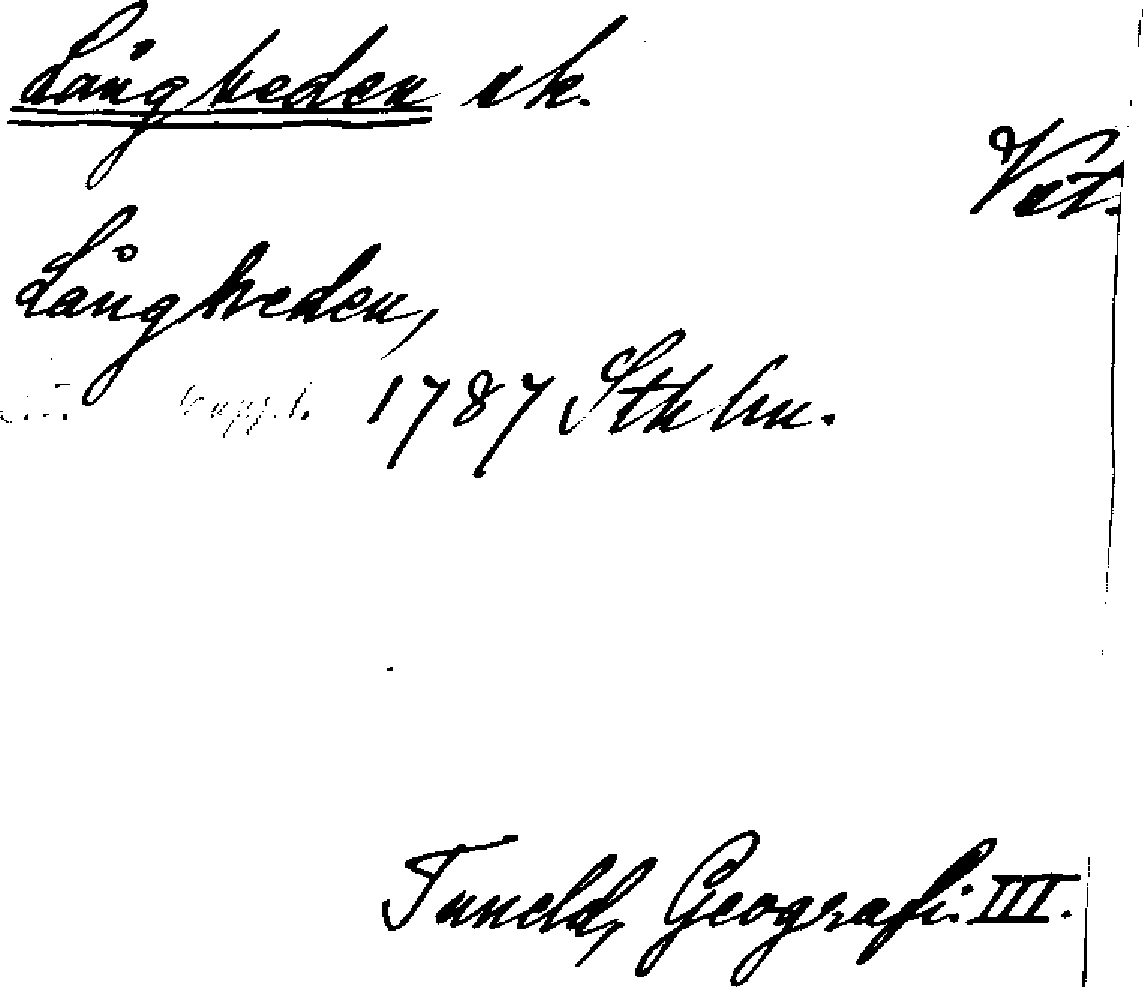 Långheden sk.
Vst.
Långheden,
1787 Sthlm.
Tuneld, Geografi. III.